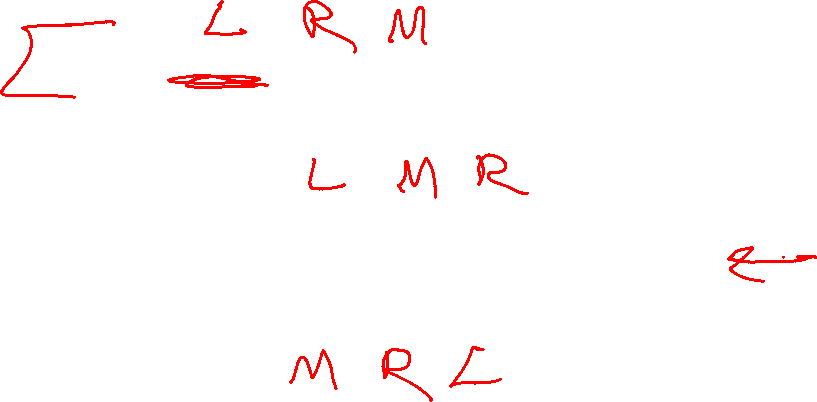 Σ L R M
L M R
←
M R L